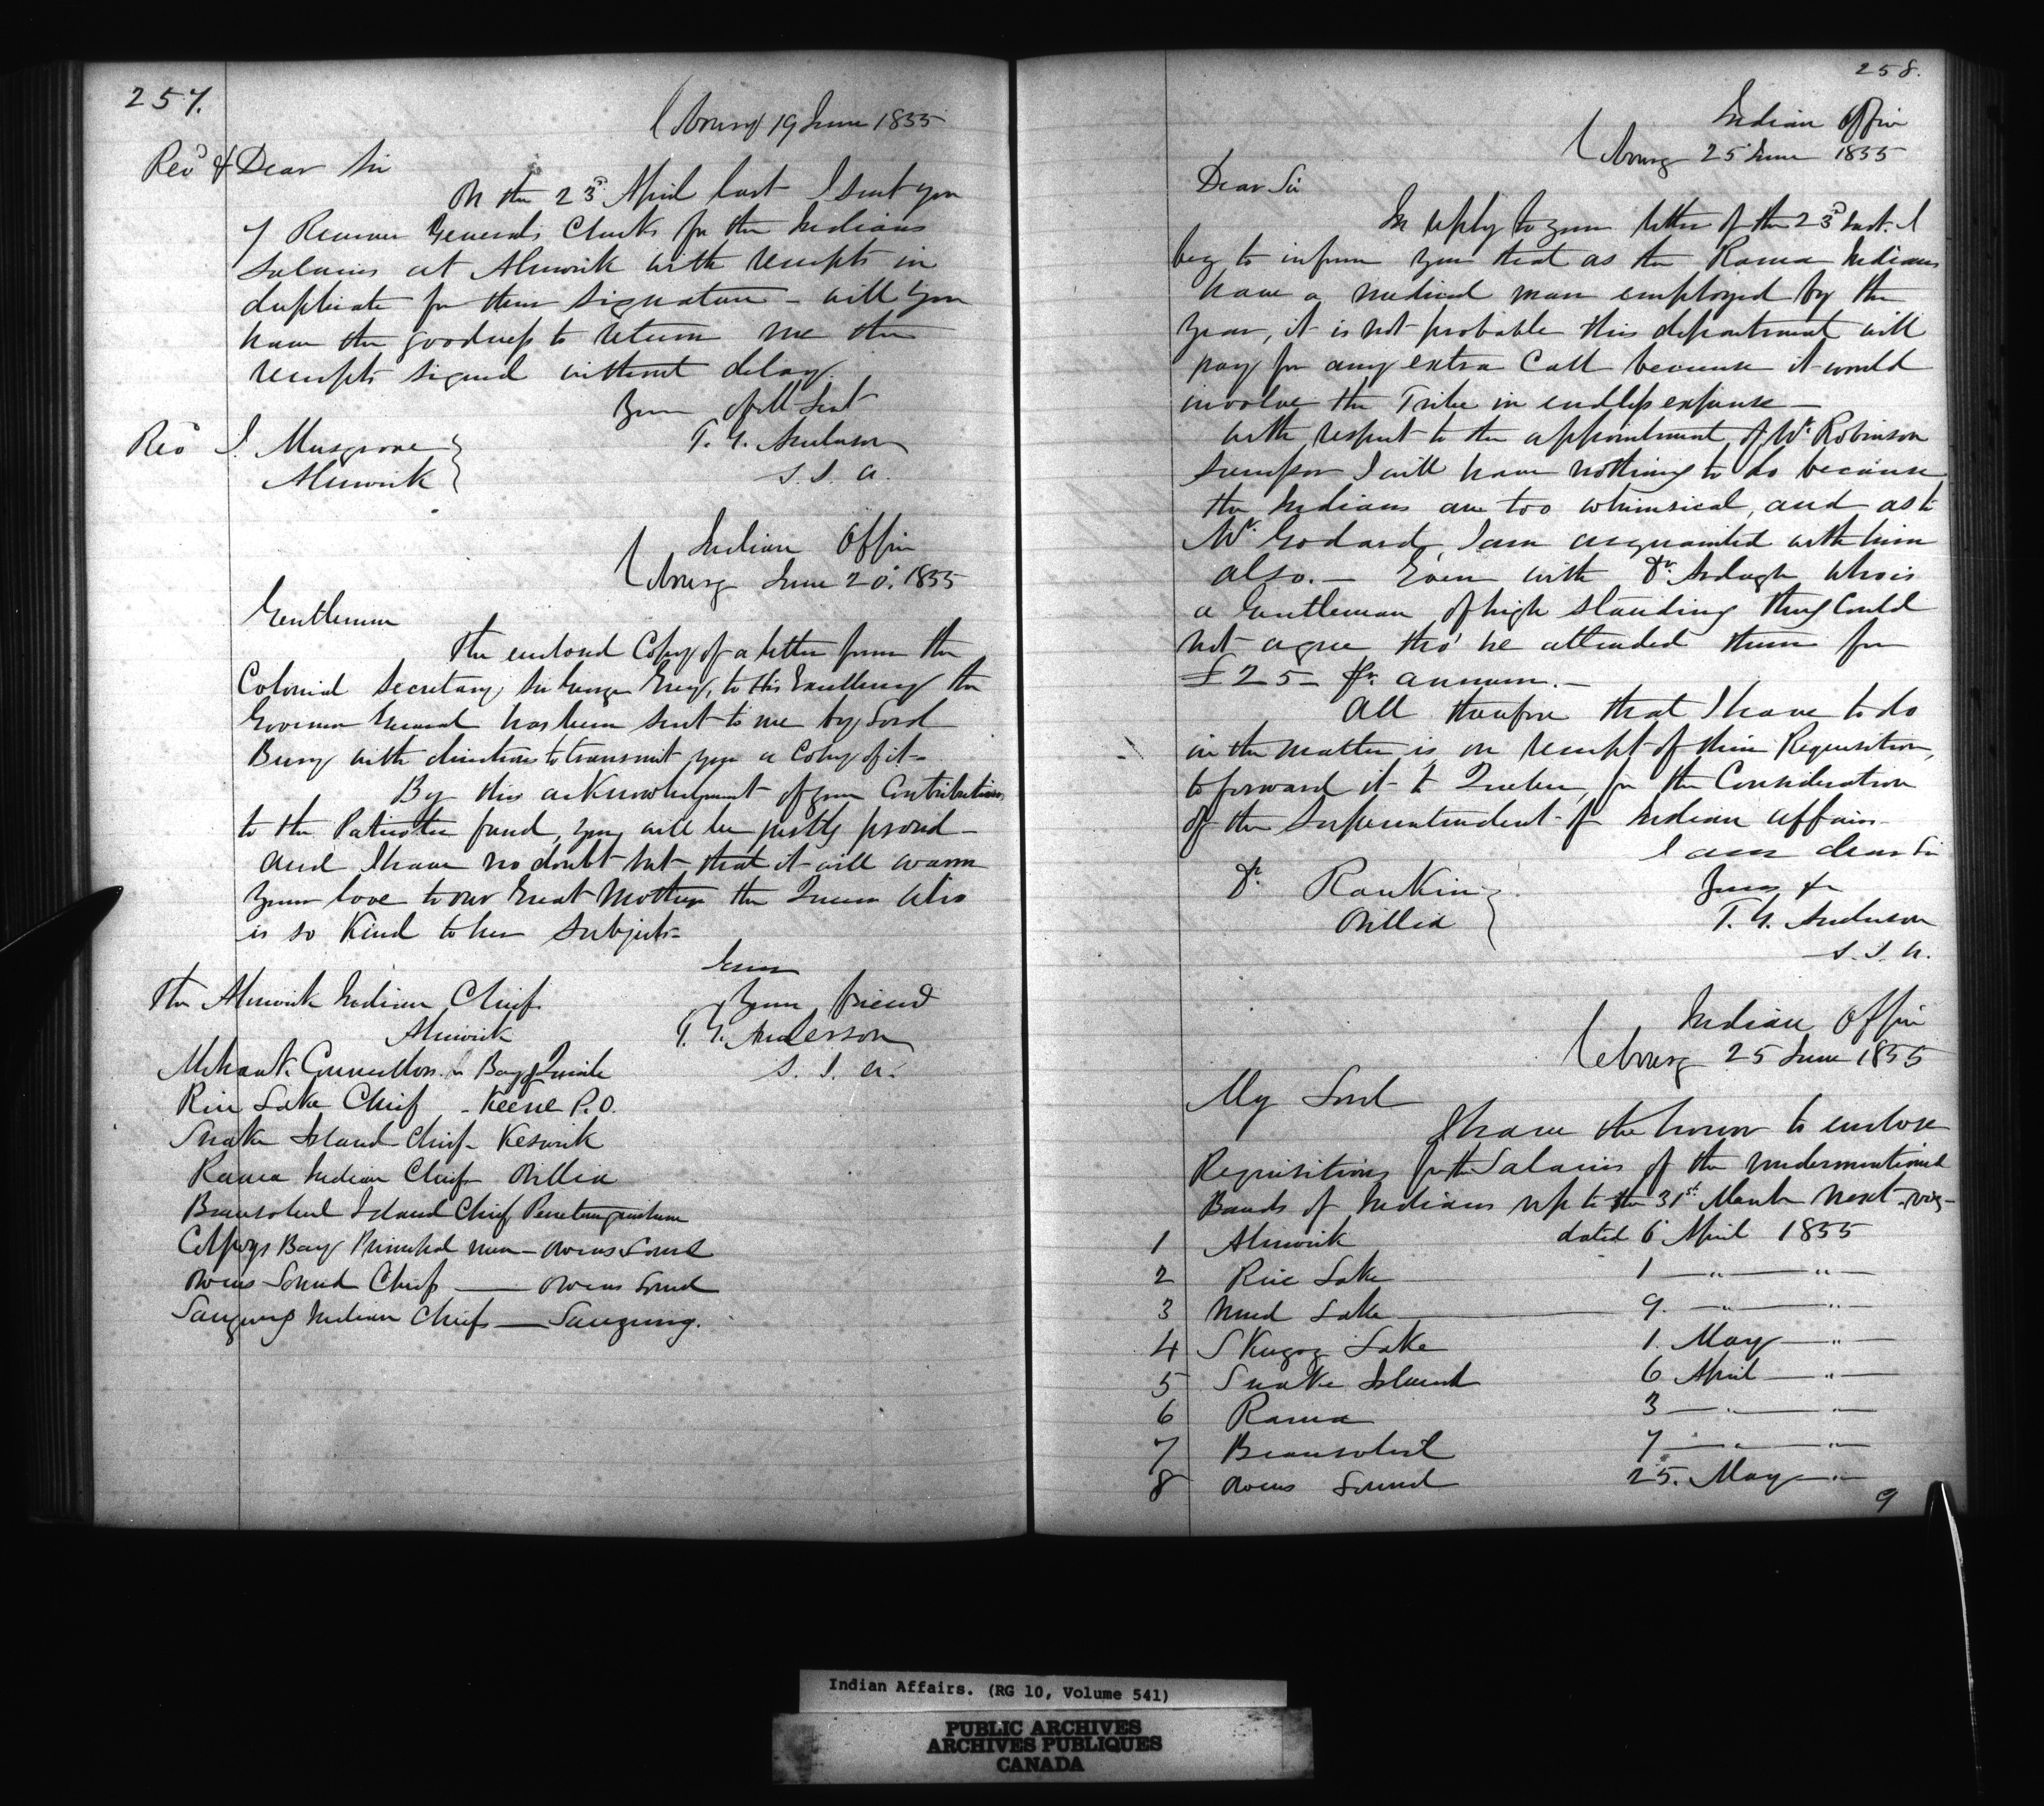 257.
Cobourg 19 June 1855
Revd & Dear Sir
On the 23d April last I sent you
7 Receiver Generals Checks for the Indians
Salaries at Alnwick with receipts in
duplicate for their signature - will you
have the goodness to return me the
receipts signed without delay.
Your Obdt Servt
T. G. Anderson
S. I. A.
Revd J. Musgrove
Alnwick
Indian Office
Cobourg June 20. 1855
Gentlemen
The enclosed Copy of a letter from the
Colonial Secretary, Sir George Grey, to His Excellency the
Governor General has been sent to me by Lord
Bury with directions to transmit you a Copy of it -
By this acknowledgment of your Contributions
to the Patriotic fund, you will be justly proud -
and I have no doubt but that it will warm
your love to our Great Mother the Queen who
is so Kind to her subjects -
Your friend
T. G. Anderson
S. I. A.
The Alnwick Indian Chief
Alnwick
Mohawk Councillors Bay of Quinte
Rice Lake Chief - Keene P.O.
Snake Island Chief - Keswick
Rama Indian Chief Orillia
Beausoleil Island Chief Penetanguishene
Colpoys Bay Principal men - Owens Sound
Owens Sound Chief — Owens Sound
Saugeeng Indian Chief — Saugeeng.
258.
Indian Office
Cobourg 25 June 1855
Dear Sir
In reply to your letter of the 23d Inst. I
beg to inform you that as the Rama Indians
have a medical man employed by the
Year, it is not probable this department will
pay for any extra Call because it would
involve the Tribe in endless expense —
With respect to the appointment of Wm Robinson
I will have nothing to do because
the Indians are too whimsical, and as to
Mr. Godard, I am acquainted with him
also. — Even with Dr. Ardagh who is
a Gentleman of high standing they Could
not agree tho' he attended them for
£25 - pr. annum. -
All therefore that I have to do
in the matter is, on receipt of their Requisition,
to forward it to Quebec, for the Consideration
of the Superintendent of Indian Affairs -
I am dear Sir
Yours &c
T. G. Anderson
S. I. A.
Dr. Rankin
Orillia
Indian Office
Cobourg 25 June 1855
My Lord
I have the honor to enclose
Requisitions for the Salaries of the undermentioned
Bands of Indians up to the 31st March next - viz -
1 Alnwick dated 6 April 1855
2 Rice Lake 1 — " — " —
3 Mud Lake — 9. — " — " —
4 Skugog Lake 1. May — " —
5 Snake Island 6 April — " —
6 Rama 3 — " — " —
7 Beausoleil 7 — " — " —
8 Owens Sound 25. May — " —
9
Indian Affairs. (RG 10, Volume 541)
PUBLIC ARCHIVES
ARCHIVES PUBLIQUES
CANADA